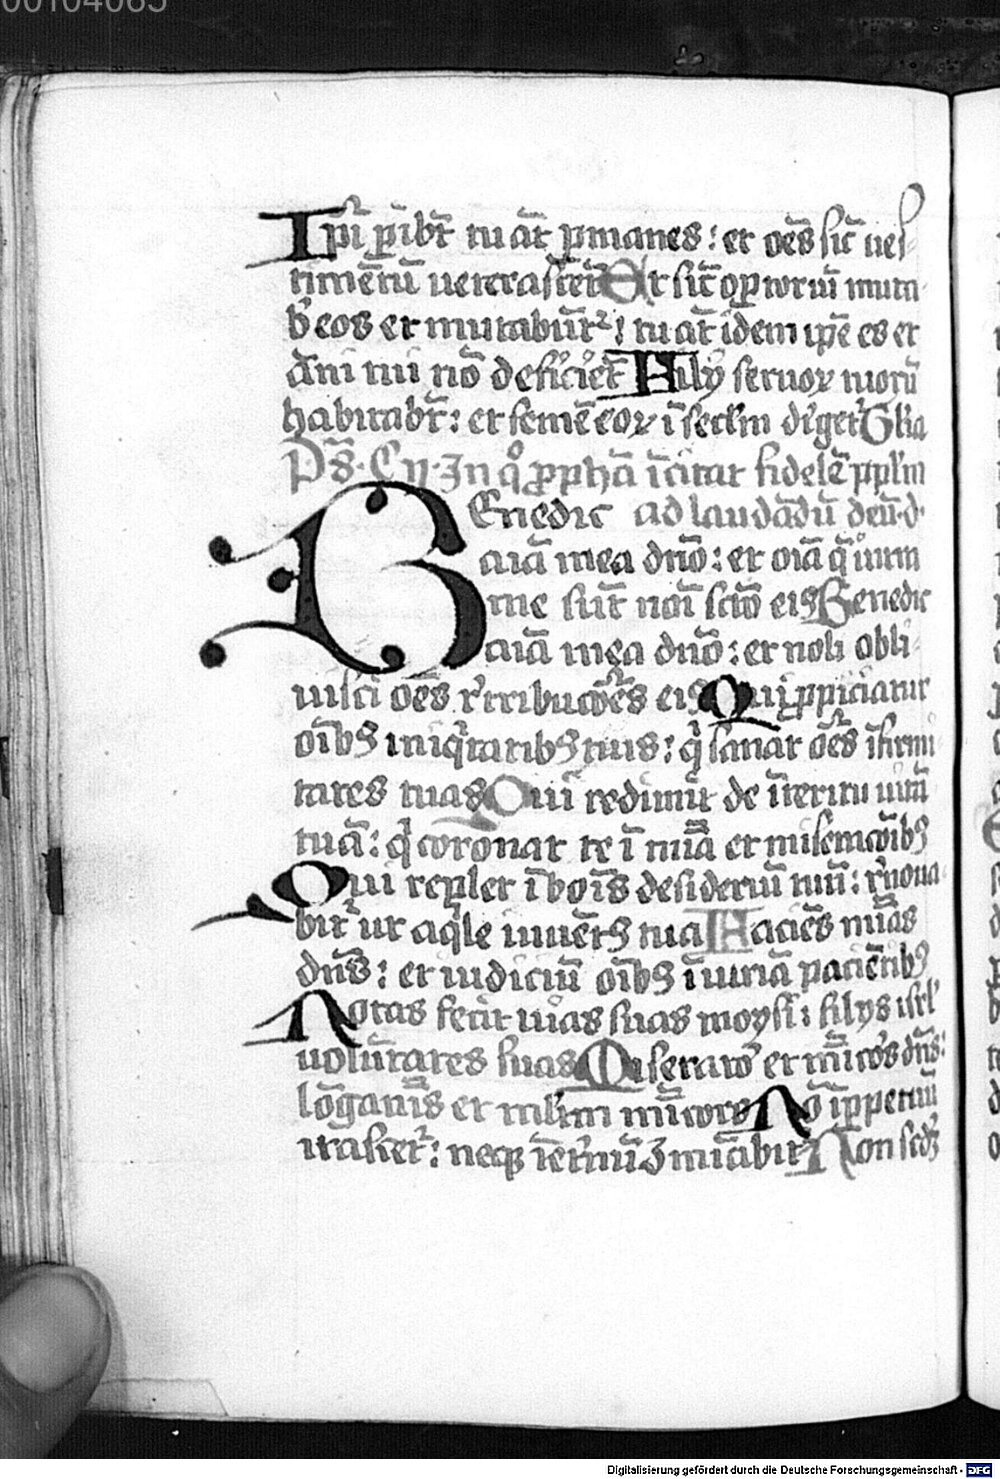 00104065
Ipi pibt̄ tu at̄ pmanes: et oēs sic̄ ues-
timētū ueterascēt Et sic̄ optoriū muta-
b' eos et mutabūt᷑: tu at̄ idem ip̄e es et
āni tui nō deficiēt Filij seruoꝝ tuoꝝ
habitabt̄: et semē eoꝝ ī sectm diget᷑ Glia
Ps̄. Cij. In qͦ pphā īcitat fidelē pplm
Benedic ad laudādū deū.d.
aīa mea dn̄o: et oīa q̄
me sūt noī scto eiꝰ Benedic
aīa mea dn̄o: et noli obli-
uisci oēs r̄tributōēs eiꝰ Qui ppiciatur
oībꝰ iniqͥtatibꝰ tuis: qͥ sanat oēs īfirmi-
tates tuas Qui redimit de īteritu uitā
tuā: qͥ coronat te ī mīa et miseratōibꝰ
Qui replet ī boīs desideriū tuū: r̄noua-
bit᷑ ut aqͥle iuuētꝰ tua Faciēs mīas
dn̄s: et iudiciū oībꝰ īiuriā paciētibꝰ
Notas fecit uias suas moysi: filijs isrl'
volūtates suas Miserator et mīcors dn̄s:
lōganīs et mltm mīcors Nō ī ppetuū
irascet᷑: neqꝫ ī et᷑nū ꝯmīabit᷑ Non scdꝫ
Digitalisierung gefördert durch die Deutsche Forschungsgemeinschaft - DFG